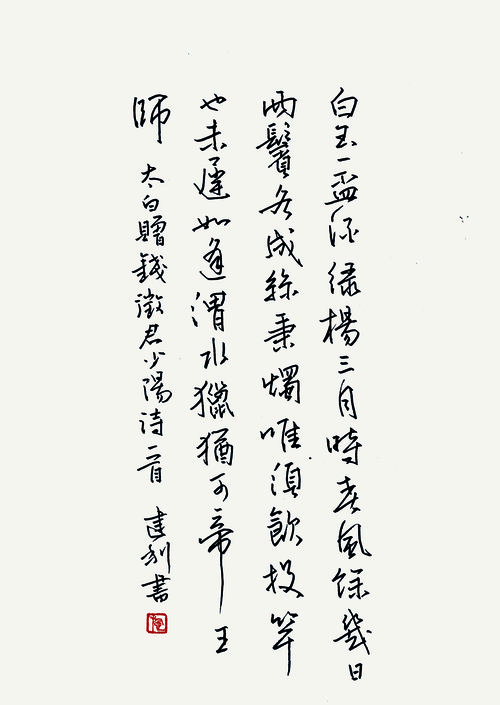 白玉一盃酒绿楊三月時春風餘幾日
兩鬢各成絲秉燭唯須飲投竿
也未遲如逢渭水獵猶可帝王
師 太白贈錢徵君少陽诗一首 建利書